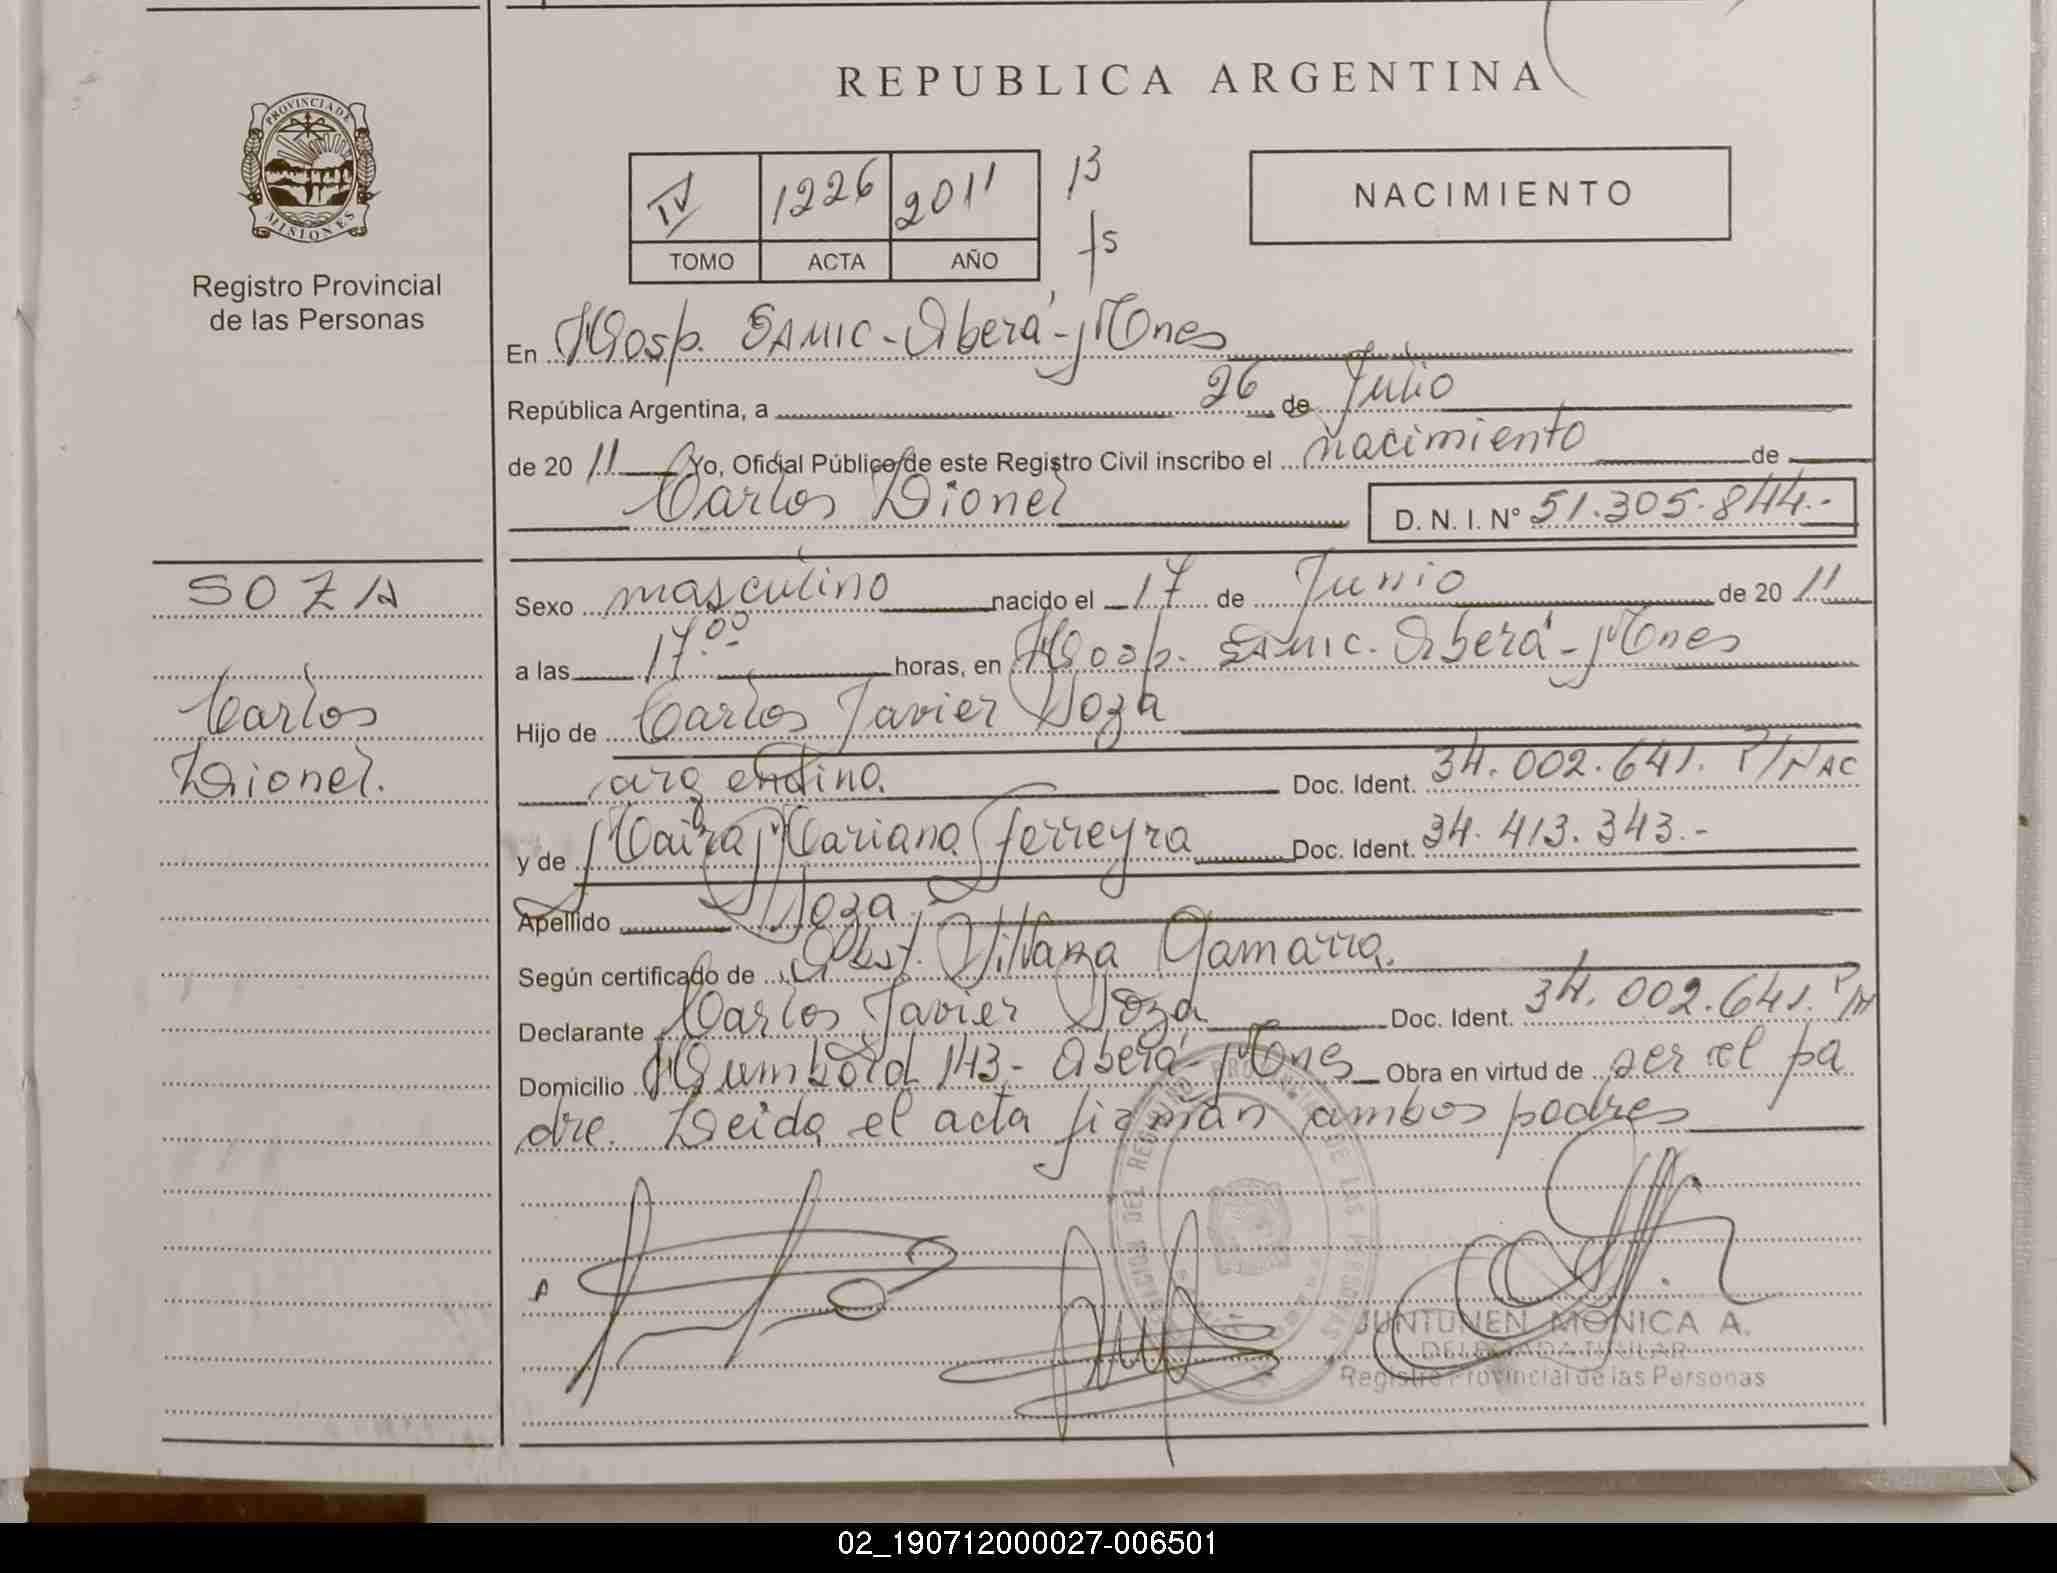 REPUBLICA ARGENTINA
PROVINCIA DE MISIONES
Registro Provincial
de las Personas
IV 1226 2011 13
TOMO ACTA AÑO fs
NACIMIENTO
En Hosp. SAMIC - Oberá - Mnes
República Argentina, a 26 de Julio
de 20 11 Yo, Oficial Público de este Registro Civil inscribo el nacimiento de
Carlos Lionel D. N. I. N° 51.305.844.-
SOZA
Carlos
Lionel.
Sexo masculino nacido el 17 de Junio de 20 11
a las 17.00 horas, en Hosp. SAMIC. Oberá - Mnes
Hijo de Carlos Javier Soza
argentino. Doc. Ident. 34.002.641. P/NAC
y de Maira Mariana Ferreyra Doc. Ident. 34.413.343.-
Apellido Soza
Según certificado de Obst. Silvana Gamarra.
Declarante Carlos Javier Soza Doc. Ident. 34.002.641. P/N
Domicilio Humbold 143 - Oberá - Mnes Obra en virtud de ser el pa
dre. Leida el acta firman ambos padres
JUNTUNEN MONICA A.
DELEGADA TITULAR
Registro Provincial de las Personas
02_190712000027-006501